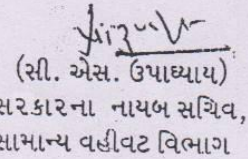 (સી. એસ. ઉપાધ્યાય)
સરકારના નાયબ સચિવ,
સામાન્ય વહીવટ વિભાગ